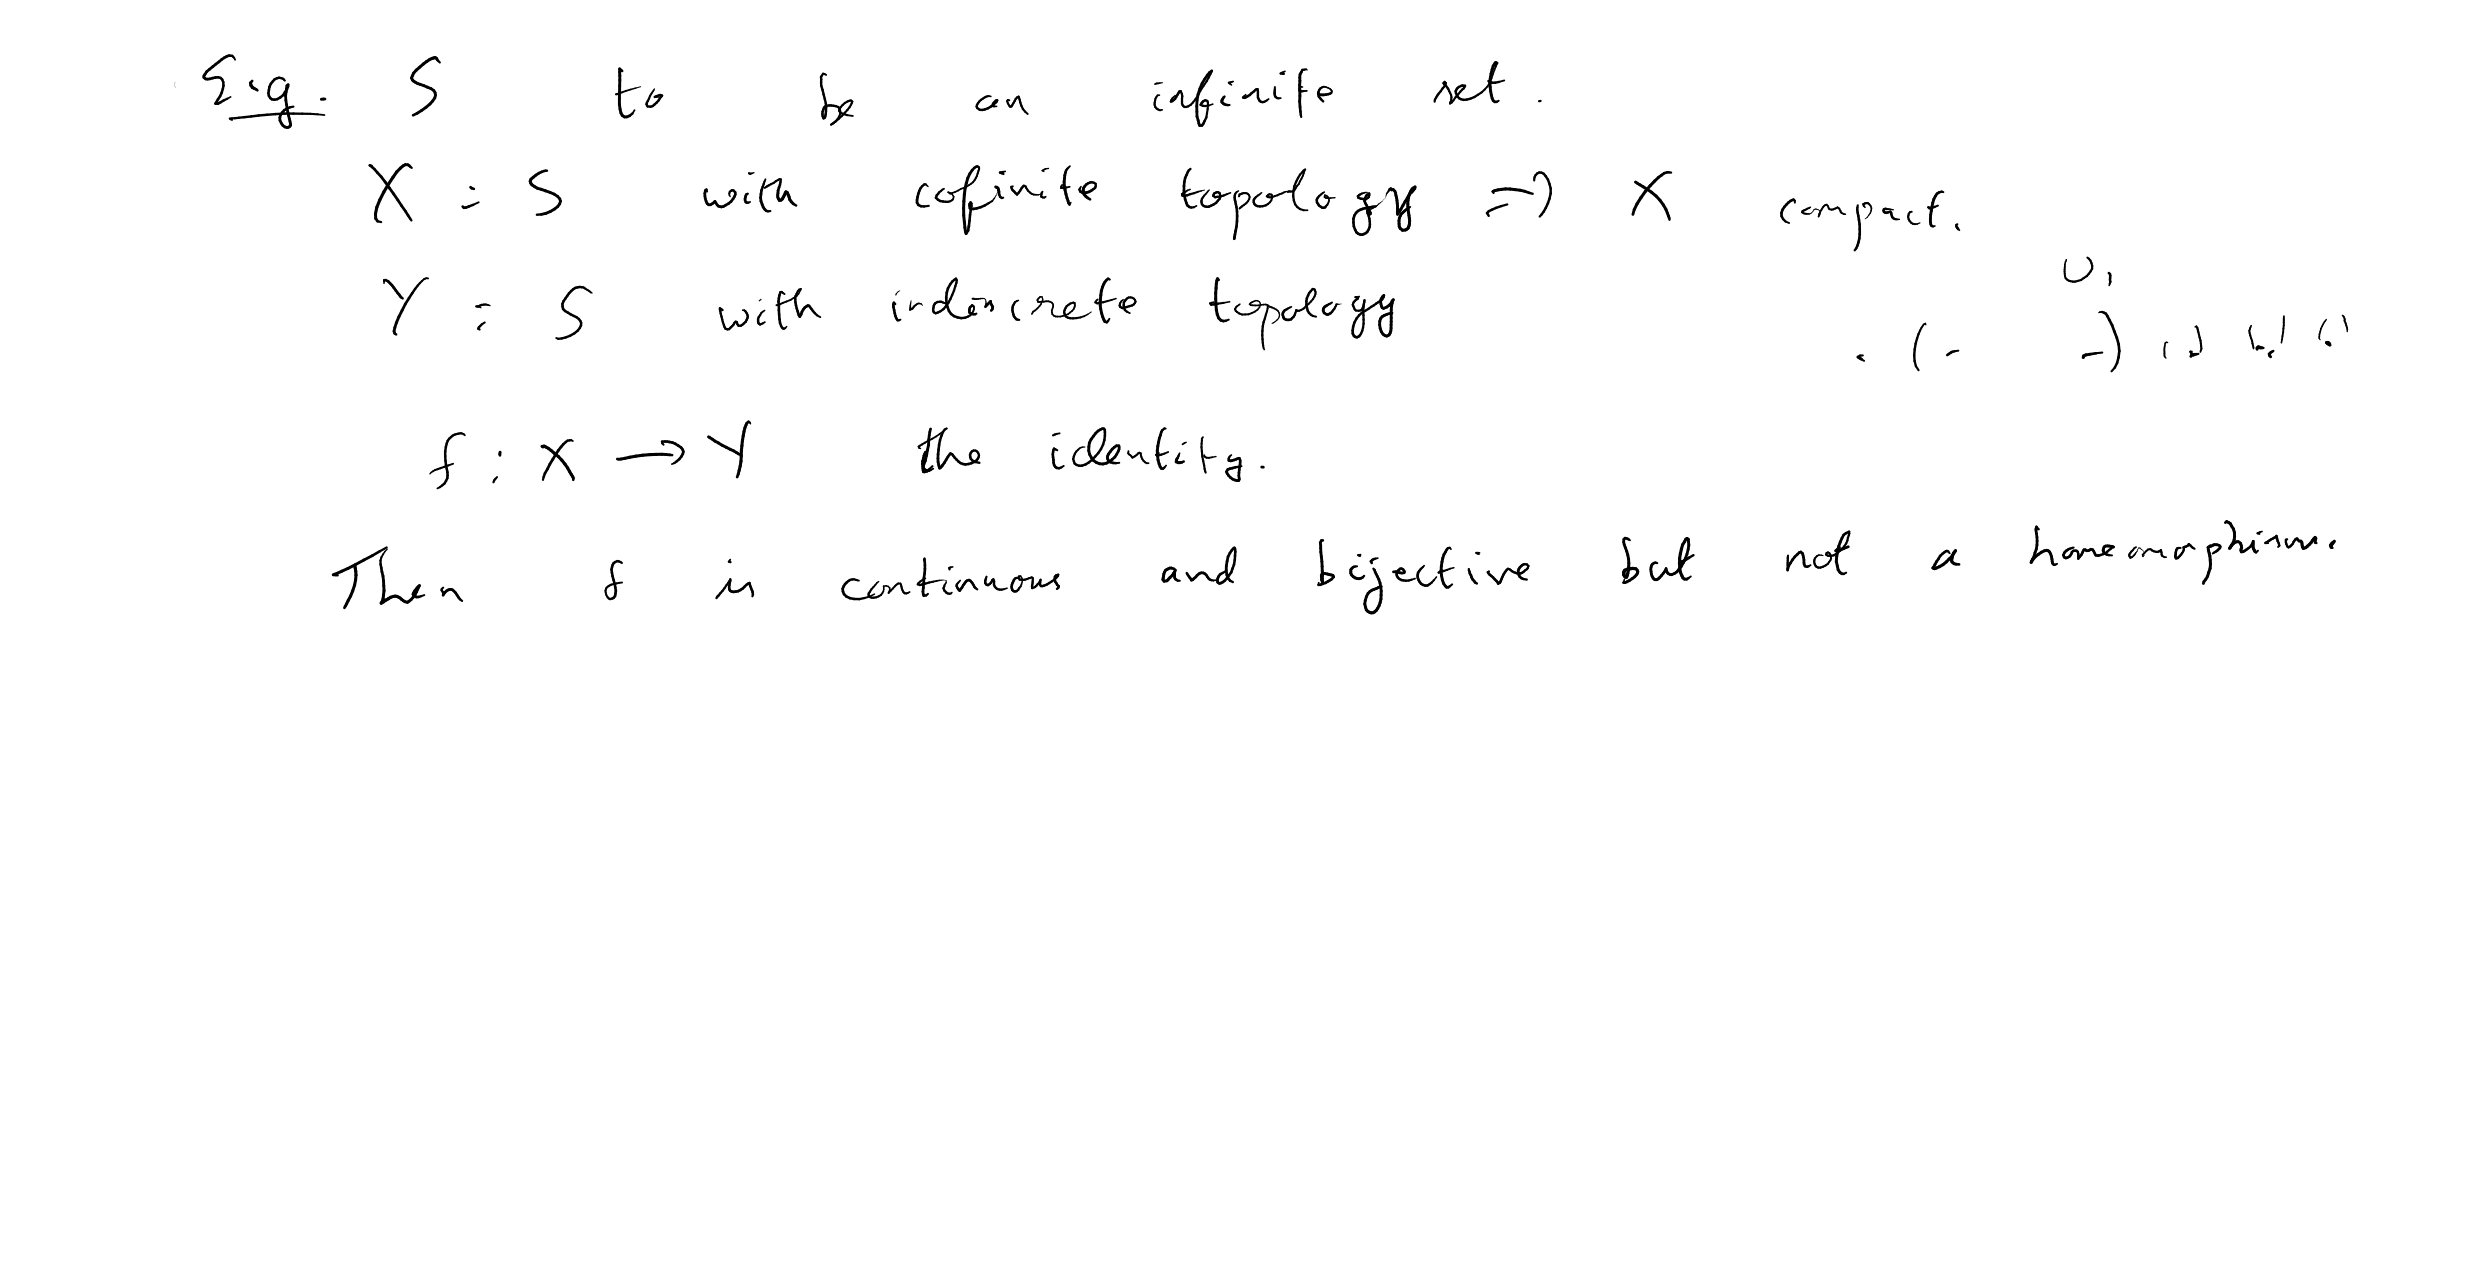 E.g. S to be an infinite set.
X = S with cofinite topology => X compact.
Y = S with indiscrete topology
U₁
. (- -) (.) (.) (.)
f : X → Y the identity.
Then f is continuous and bijective but not a homeomorphism.